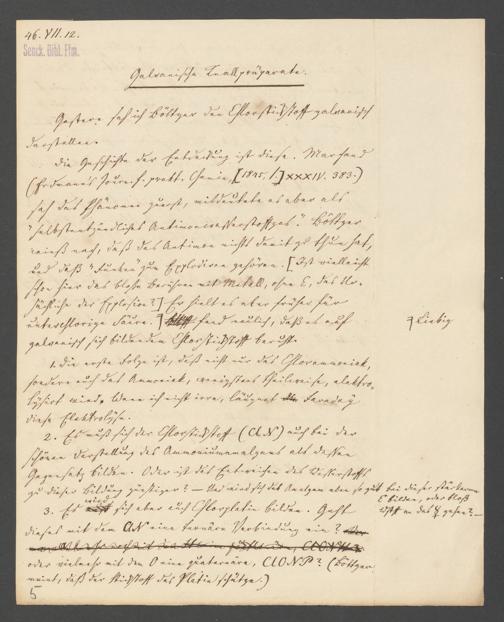 46. VII. 12.
Senck. Bibl. Ffm.
Galvanische Knallpräparate.
Gestern sah ich Böttger den Chlorstickstoff galvanisch
darstellen.
Die Geschichte der Entdeckung ist diese. Marchand
(Erdmann's Journ. f. prakt. Chemie, [1845, I.] XXXIV. 383.)
sah das Phänomen zuerst, mißdeutete es aber als
"selbstentzündliches Antimonwasserstoffgas". Böttger
wies nach, daß das Antimon nichts damit zu thun hat,
und daß "Funken" zur Explosion gehören. [Ist vielleicht
schon hier das bloße Berühren mit Metall, ohne E, das Ur-
sächliche der Explosion?] Er hielt es aber früher für
unterchlorige Säure. fand neulich, daß es auf
galvanisch sich bildenden Chlorstickstoff beruht.
Liebig
1. Die erste Folge ist, daß nicht nur das Chlorammoniak,
sondern auch das Ammoniak, wenigstens theilweise, elektro-
lysirt wird. Wenn ich nicht irre, läugnet Faraday
diese Elektrolyse.
2. Es muß sich der Chlorstickstoff (Cl.N) auch bei der
schönen Darstellung des Ammoniumamalgams als dessen
Gegensatz bilden. Oder ist das Entweichen des Wasserstoffs
zu dieser Bildung günstiger? – Das wird sich das Amalgam eben so gut bei dieser stärkeren
E bilden, oder bloß
3. Es wird sich aber auch Chlorplatin bilden. Geht
dieses mit dem Cl.N eine ternäre Verbindung ein?
oder vielmehr mit dem O eine quaternäre, Cl.O.N.P? (Böttger
meint, daß der Stickstoff das Platin schütze.)
5